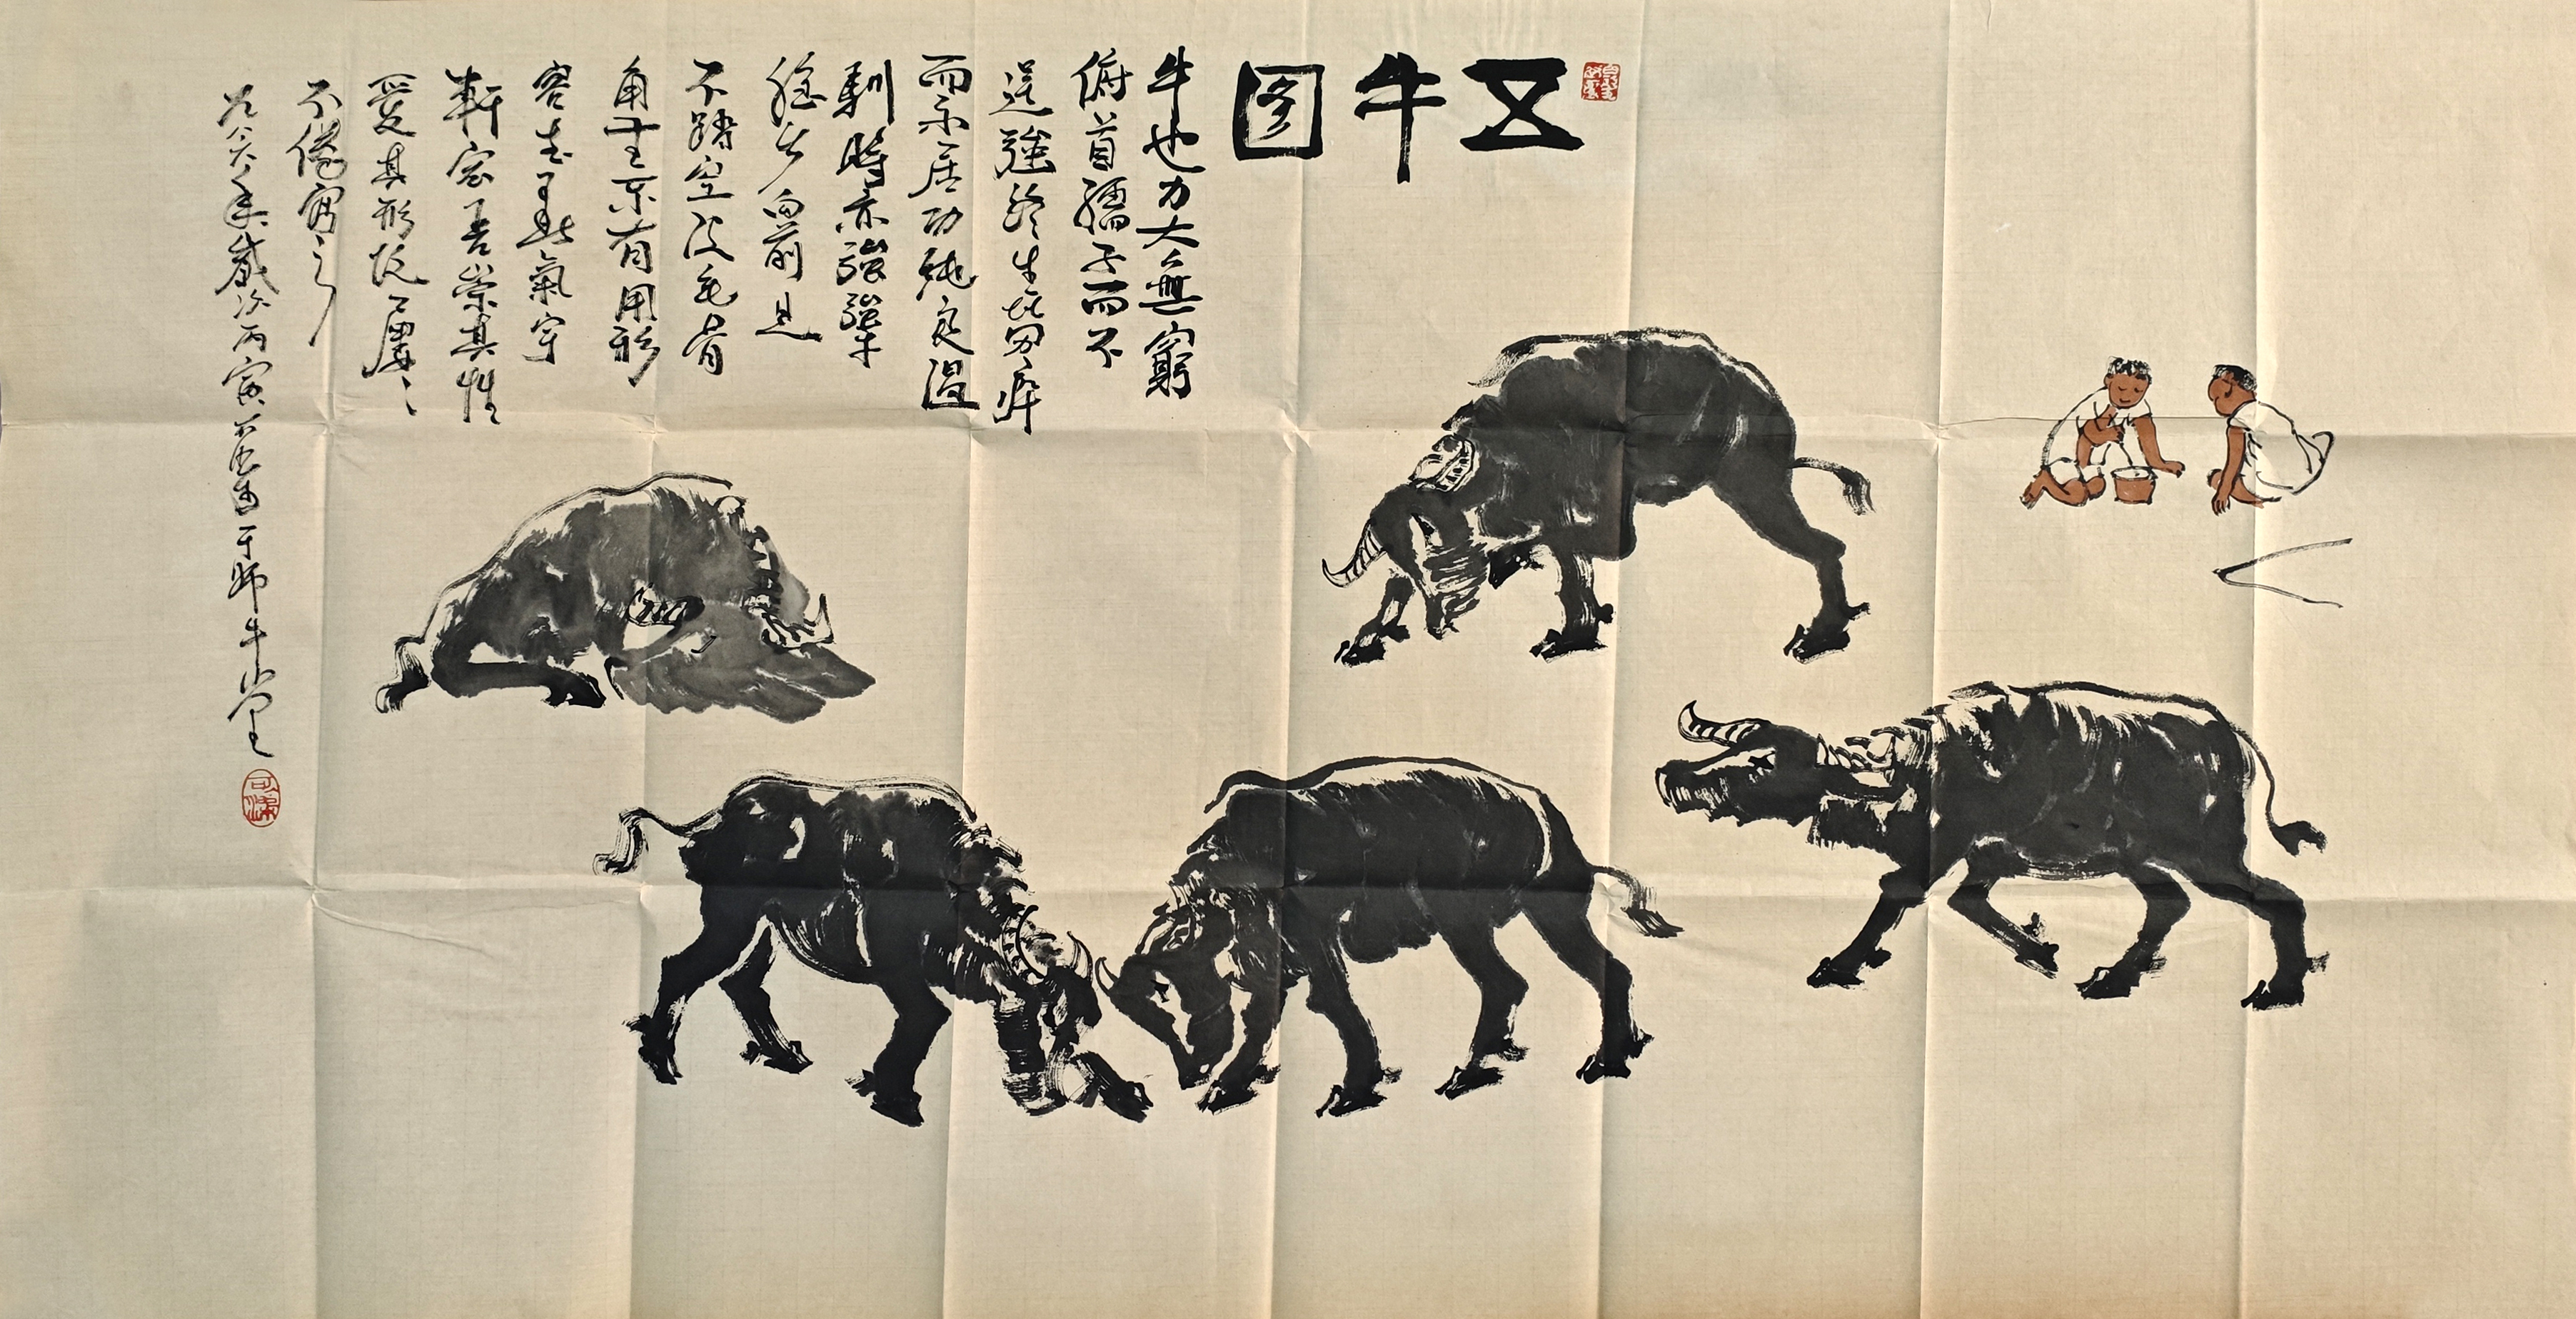 五牛图
牛也力大無窮
俯首孺子而不
逞強終生劳瘁
而不居功純良温
馴時亦強犟
穩步向前足
不踏空皮毛骨
角 有用形
容 無 氣宇
軒宏吾崇其性
愛其形故 屢〻
不倦寫之
九八六年歲次丙寅 可染 于師牛堂
可染